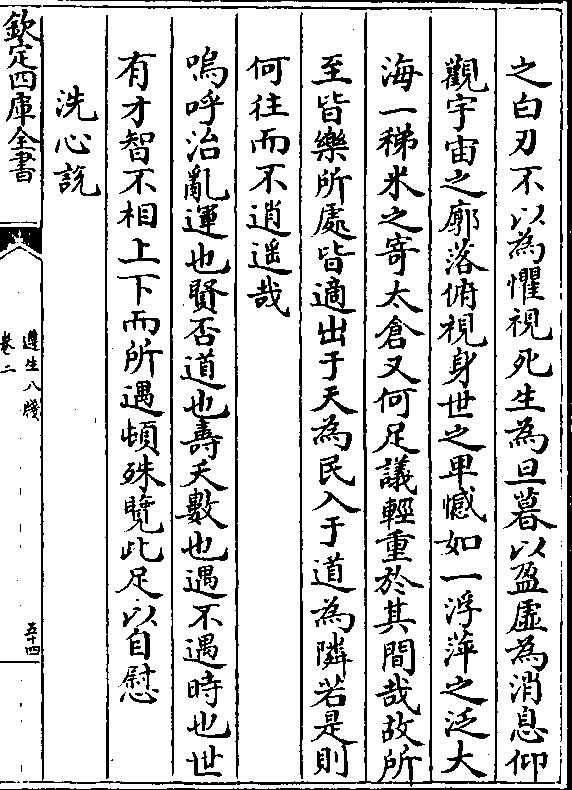 之白刃不以為懼視死生為旦暮以盈虛為消息仰
觀宇宙之廓落俯視身世之卑憾如一浮萍之泛大
海一稊米之寄太倉又何足議輕重於其間哉故所
至皆樂所處皆適出于天為民入于道為隣若是則
何往而不逍遥哉
嗚呼治亂運也賢否道也壽夭數也遇不遇時也世
有才智不相上下而所遇頓殊覽此足以自慰
洗心說
欽定四庫全書
遵生八牋
卷二
五十四